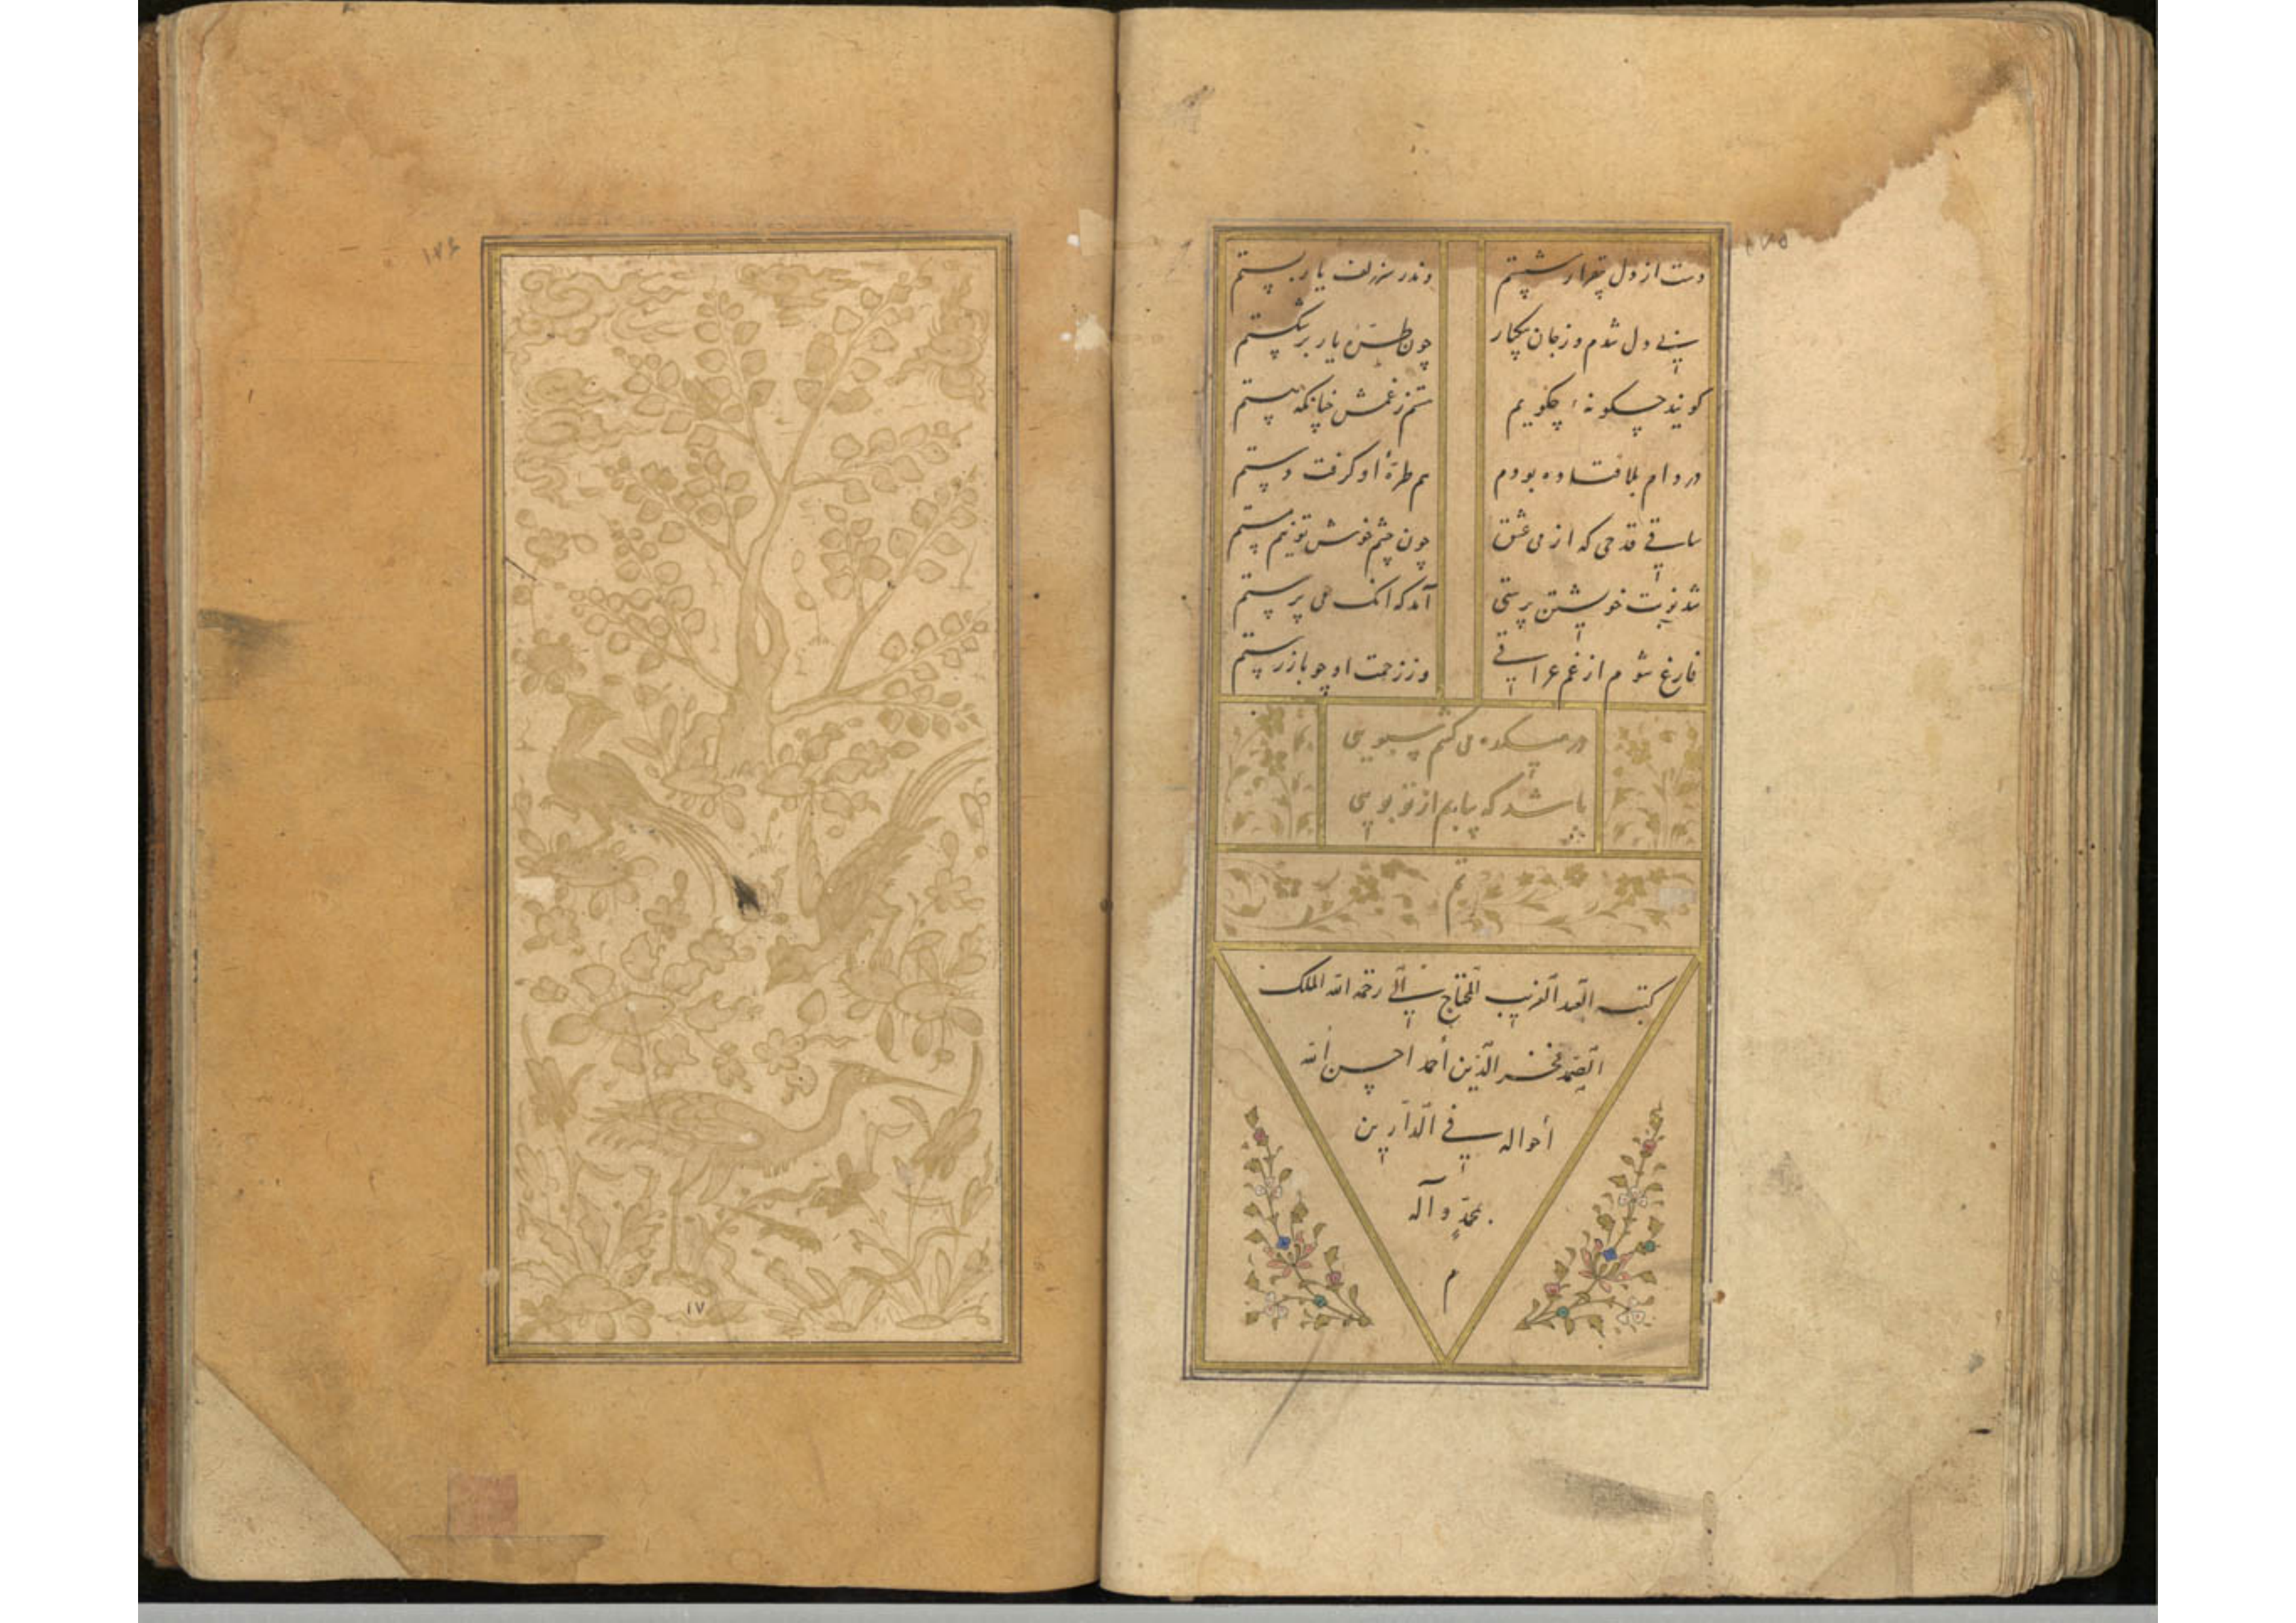 دست از دل بیقرار شستم
وندر سر زلف یار بستم
بی دل شدم و ز جان بیکبار
چون طرّهٔ یار برشکستم
گویند چگونهٔ چگویم
هستم ز غمش چنانکه هستم
در دام بلا فتاده بودم
هم طرّهٔ او گرفت دستم
ساقی قدحی که از می عشق
چون چشم خوش تو نیم مستم
شد نوبت خویشتن پرستی
آمد که آنک می پرستم
فارغ شوم از غم عراقی
وز زحمت او چو باز رستم
در میکده می کشم سبویی
باشد که بیابم از تو بویی
تم
کتبه العبد الغریب المحتاج الی رحمة الله الملک
الصمد فخر الدین احمد احسن الله
أحواله فی الدارین
بمحمدٍ وآله
م
۱۷